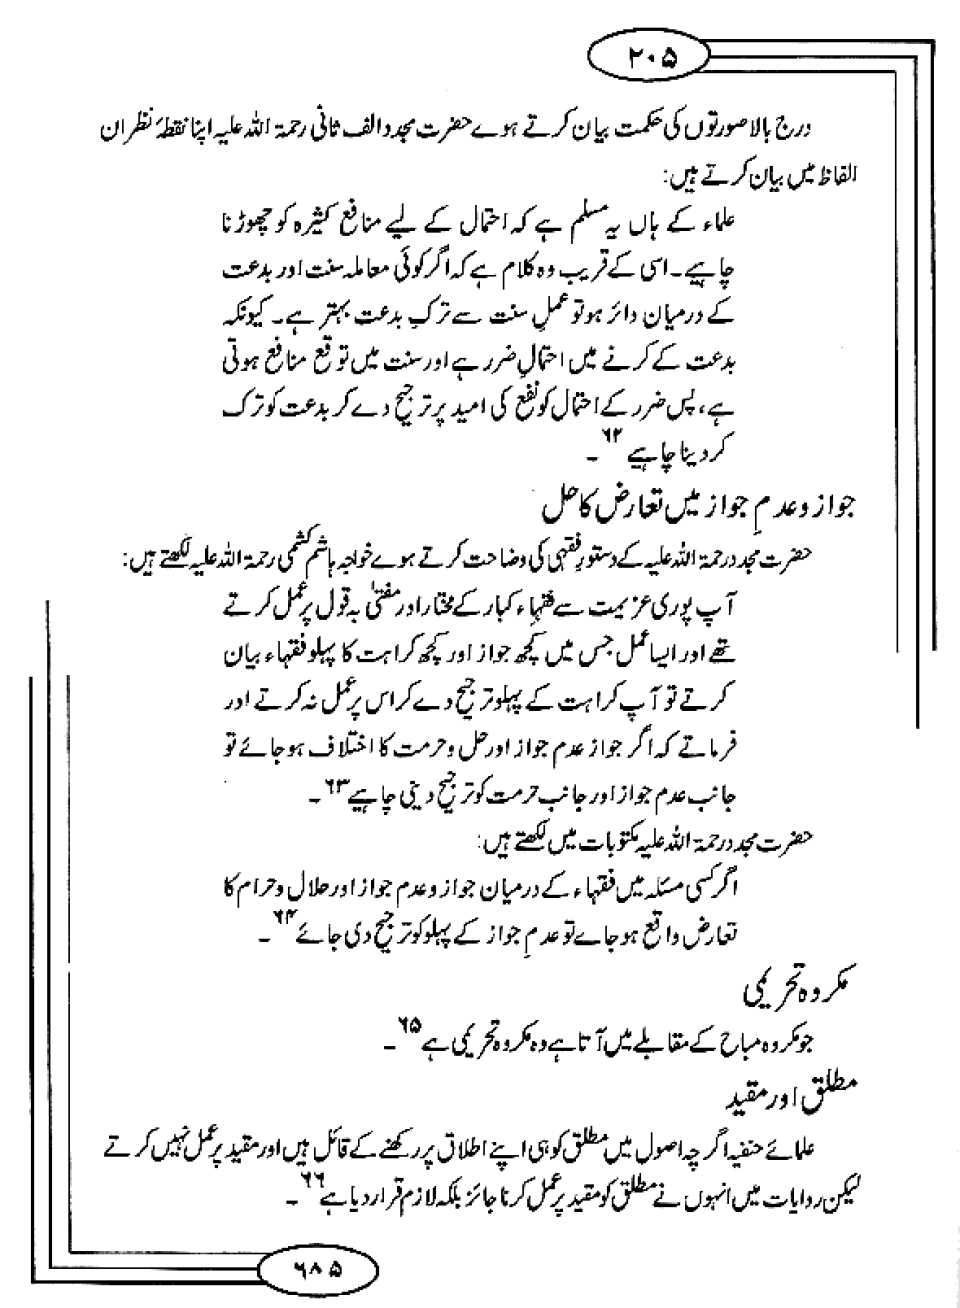 ۲۰۵
درج بالا صورتوں کی حکمت بیان کرتے ہوے حضرت مجدد الف ثانی رحمۃ اللہ علیہ اپنا نقطۂ نظر ان
الفاظ میں بیان کرتے ہیں:
علماء کے ہاں یہ مسلم ہے کہ احتمال کے لیے منافع کثیرہ کو چھوڑنا
چاہیے۔ اسی کے قریب وہ کلام ہے کہ اگر کوئی معاملہ سنت اور بدعت
کے درمیان دائر ہو تو عملِ سنت سے ترکِ بدعت بہتر ہے۔ کیونکہ
بدعت کے کرنے میں احتمالِ ضرر ہے اور سنت میں توقع منافع ہوتی
ہے، پس ضرر کے احتمال کو نفع کی امید پر ترجیح دے کر بدعت کو ترک
کر دینا چاہیے ۶۲۔
جواز و عدمِ جواز میں تعارض کا حل
حضرت مجدد رحمۃ اللہ علیہ کے دستورِ فقہی کی وضاحت کرتے ہوے خواجہ ہاشم کشمی رحمۃ اللہ علیہ لکھتے ہیں:
آپ پوری عزیمت سے فقہاء کبار کے مختار اور مفتیٰ بہ قول پر عمل کرتے
تھے اور ایسا عمل جس میں کچھ جواز اور کچھ کراہت کا پہلو فقہاء بیان
کرتے تو آپ کراہت کے پہلو ترجیح دے کر اس پر عمل نہ کرتے اور
فرماتے کہ اگر جواز عدم جواز اور حل و حرمت کا اختلاف ہو جائے تو
جانب عدم جواز اور جانب حرمت کو ترجیح دینی چاہیے ۶۳۔
حضرت مجدد رحمۃ اللہ علیہ مکتوبات میں لکھتے ہیں:
اگر کسی مسئلہ میں فقہاء کے درمیان جواز و عدم جواز اور حلال و حرام کا
تعارض واقع ہو جاے تو عدمِ جواز کے پہلو کو ترجیح دی جائے ۶۴۔
مکروہ تحریمی
جو مکروہ مباح کے مقابلے میں آتا ہے وہ مکروہ تحریمی ہے ۶۵۔
مطلق اور مقید
علمائے حنفیہ اگرچہ اصول میں مطلق کو ہی اپنے اطلاق پر رکھنے کے قائل ہیں اور مقید پر عمل نہیں کرتے
لیکن روایات میں انہوں نے مطلق کو مقید پر عمل کرنا جائز بلکہ لازم قرار دیا ہے ۶۶۔
۶۸۵